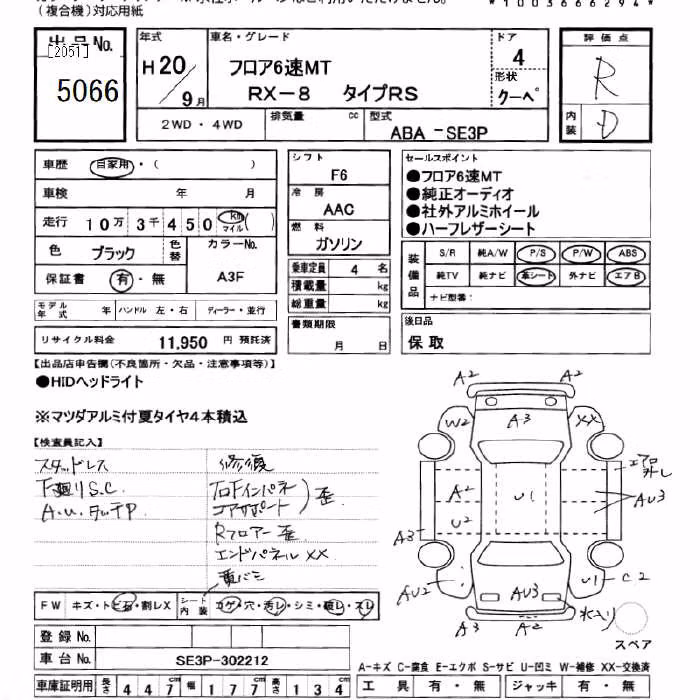 (複合機)対応用紙
*1003666294*
出品No.
[2051]
5066
年式
H20/9月
車名・グレード
フロア6速MT
RX-8 タイプRS
ドア
4
形状
クーペ
評価点
R
内装
D
2WD・4WD
排気量 cc
型式
ABA -SE3P
車歴 自家用・( )
車検 年 月
走行 10万 3千 450 km マイル ( )
色 ブラック 色替
カラーNo.
A3F
保証書 有・無
モデル年式 年 ハンドル 左・右 ディーラー・並行
リサイクル料金 11,950 円 預託済
シフト
F6
冷房
AAC
燃料
ガソリン
乗車定員 4 名
積載量 kg
総重量 kg
書類期限
月 日
セールスポイント
●フロア6速MT
●純正オーディオ
●社外アルミホイール
●ハーフレザーシート
装備品
S/R 純A/W P/S P/W ABS
純TV 純ナビ 革シート 外ナビ エアB
ナビ型番:
後日品
保取
【出品店申告欄(不良箇所・欠品・注意事項等)】
●HIDヘッドライト
※マツダアルミ付夏タイヤ4本積込
【検査員記入】
スタッドレス
下廻りS.C.
A.U.タッチP
修復
右Fインパネ
コアサポート
歪
Rフロアー歪
エンドパネルXX
A2 A2
W2 A3 XX
エアロ外し
A2 U1 AU3
U2
A3
AU2 AU3 U1 C2
A3 A2
水入り
スペア
FW キズ・トビ石・割レX
シート内装 コゲ・穴・汚レ・シミ・破レ・スレ
登録No.
車台No. SE3P-302212
車庫証明用 長さ 447cm 幅 177cm 高さ 134cm
A-キズ C-腐食 E-エクボ S-サビ U-凹ミ W-補修 XX-交換済
工具 有・無 ジャッキ 有・無